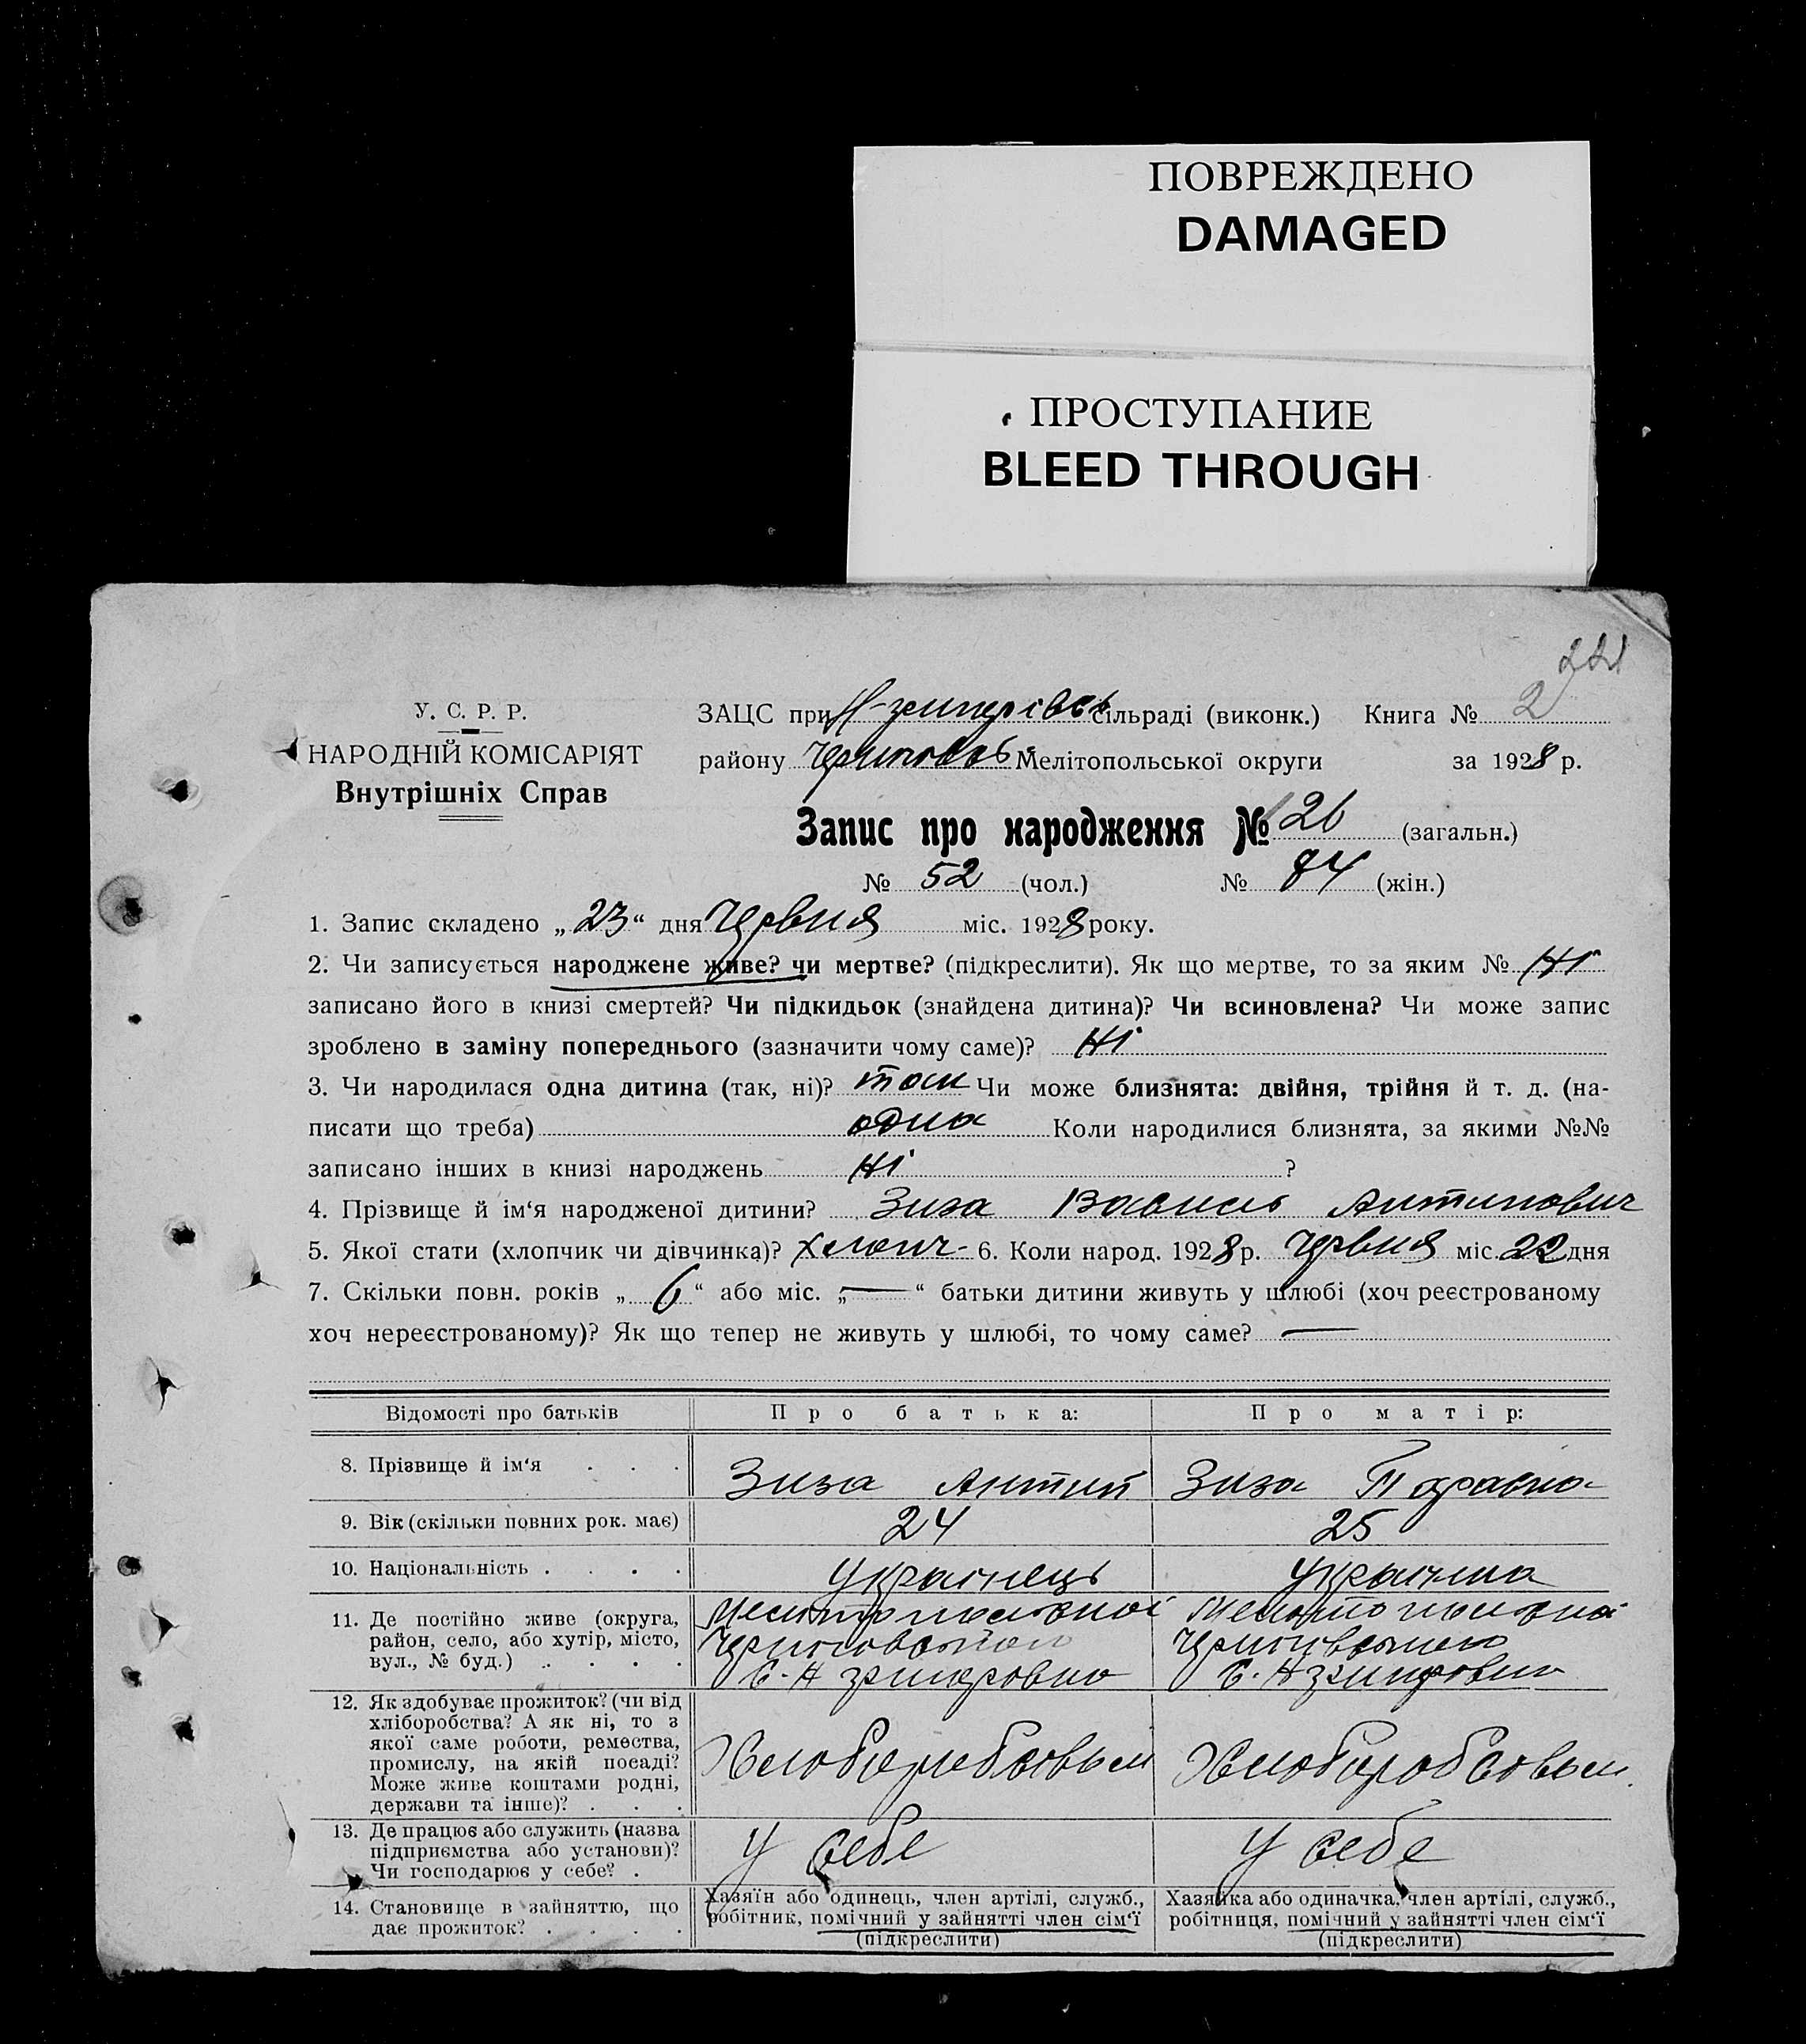 ПОВРЕЖДЕНО
DAMAGED
ПРОСТУПАНИЕ
BLEED THROUGH
У. С. Р. Р.
НАРОДНІЙ КОМІСАРІЯТ
Внутрішніх Справ
ЗАЦС при сільраді (виконк.) Книга № 2
району Мелітопольської округи за 1928 р.
Запис про народження № 126 (загальн.)
№ 52 (чол.) № 84 (жін.)
1. Запис складено „23“ дня Червня міс. 1928 року.
2. Чи записується народжене живе? чи мертве? (підкреслити). Як що мертве, то за яким № Ні
записано його в книзі смертей? Чи підкидьок (знайдена дитина)? Чи всиновлена? Чи може запис
зроблено в заміну попереднього (зазначити чому саме)? Ні
3. Чи народилася одна дитина (так, ні)? так Чи може близнята: двійня, трійня й т. д. (на-
писати що треба) одна Коли народилися близнята, за якими №№
записано інших в книзі народжень Ні ?
4. Прізвище й ім‘я народженої дитини? Зиза Василь Антипович
5. Якої стати (хлопчик чи дівчинка)? хлопч- 6. Коли народ. 1928 р. Червня міс. 22 дня
7. Скільки повн. років „6“ або міс. „—“ батьки дитини живуть у шлюбі (хоч реєстрованому
хоч нереєстрованому)? Як що тепер не живуть у шлюбі, то чому саме? —
Відомості про батьків Про батька: Про матір:
8. Прізвище й ім‘я . . . Зиза Антип Зиза
9. Вік (скільки повних рок. має) 24 25
10. Національність . . . . Українець Українка
11. Де постійно живе (округа,
район, село, або хутір, місто,
вул., № буд.) . . . .
12. Як здобуває прожиток? (чи від
хліборобства? А як ні, то з
якої саме роботи, ремества,
промислу, на якій посаді?
Може живе коштами родні,
держави та інше)? . . .
13. Де працює або служить (назва
підприємства або установи)?
Чи господарює у себе? .
у себе у себе
14. Становище в зайняттю, що
дає прожиток? . . . .
Хазяїн або одинець, член артілі, служб.,
робітник, помічний у зайнятті член сім‘ї
(підкреслити)
Хазяйка або одиначка, член артілі, служб.,
робітниця, помічний у зайнятті член сім‘ї
(підкреслити)